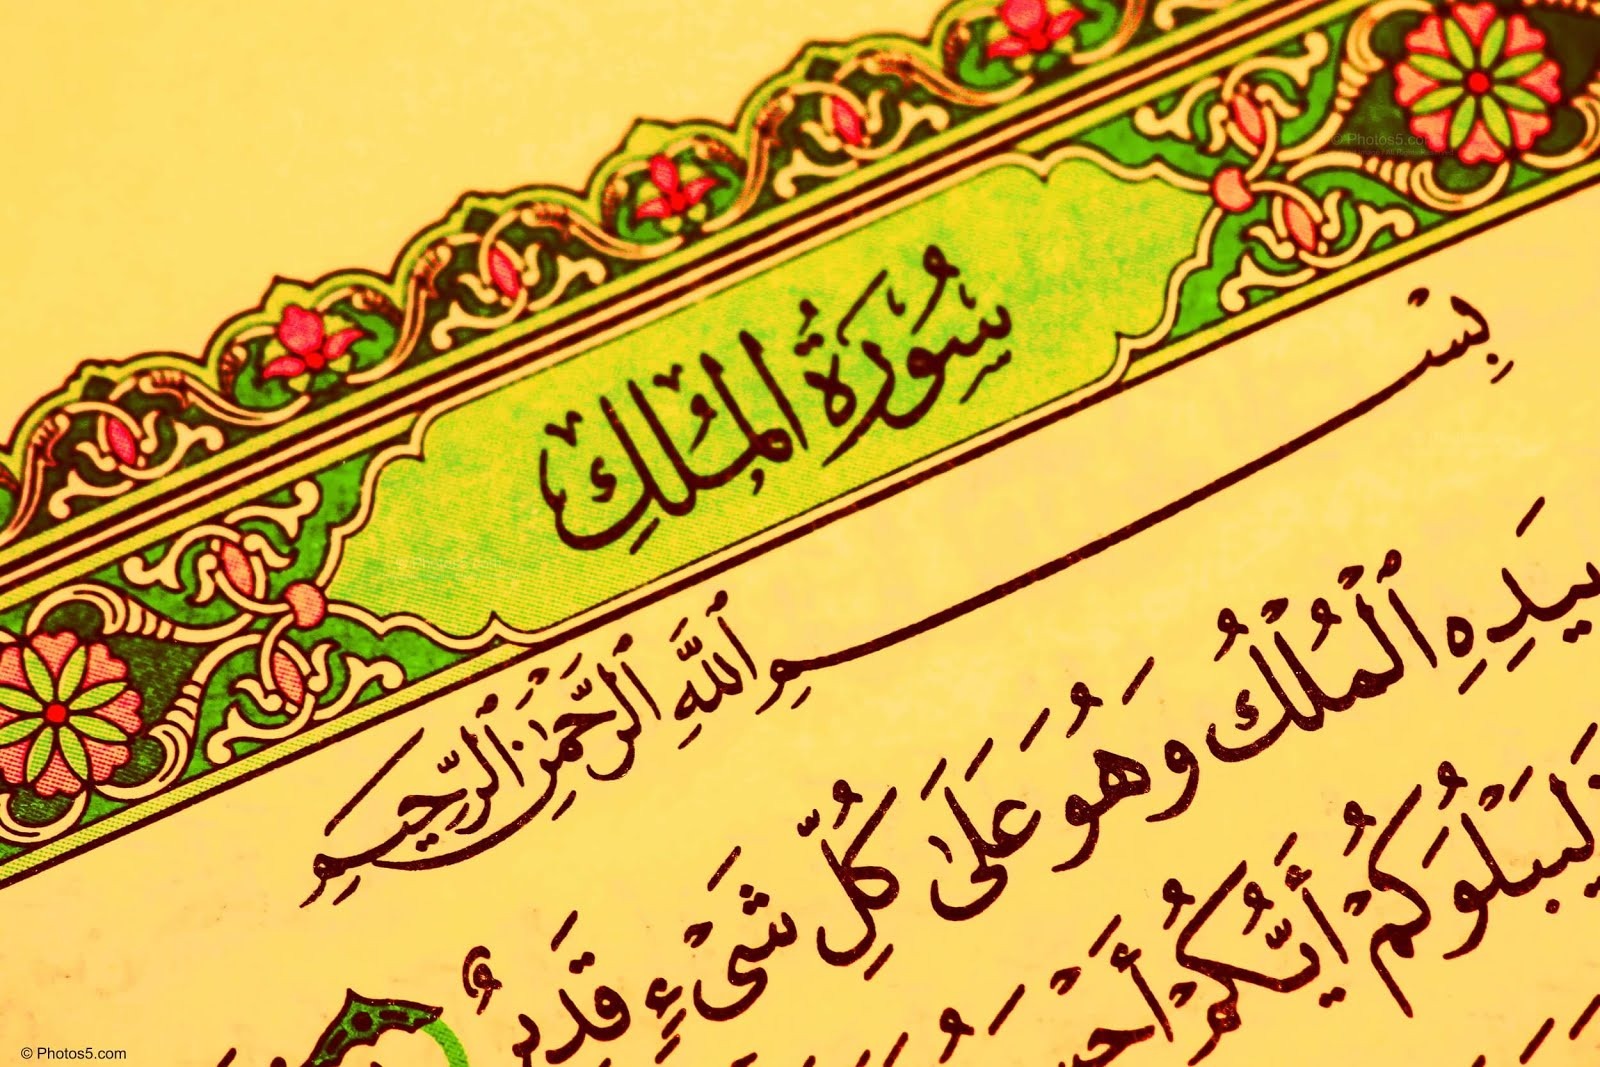 © Photos5.com
سُورَةُ المُلْكِ
بِسْمِ ٱللَّهِ ٱلرَّحْمَٰنِ ٱلرَّحِيمِ
بِيَدِهِ ٱلْمُلْكُ وَهُوَ عَلَىٰ كُلِّ شَىْءٍ قَدِيرٌ
لِيَبْلُوَكُمْ أَيُّكُمْ
© Photos5.com
© Photos5.com